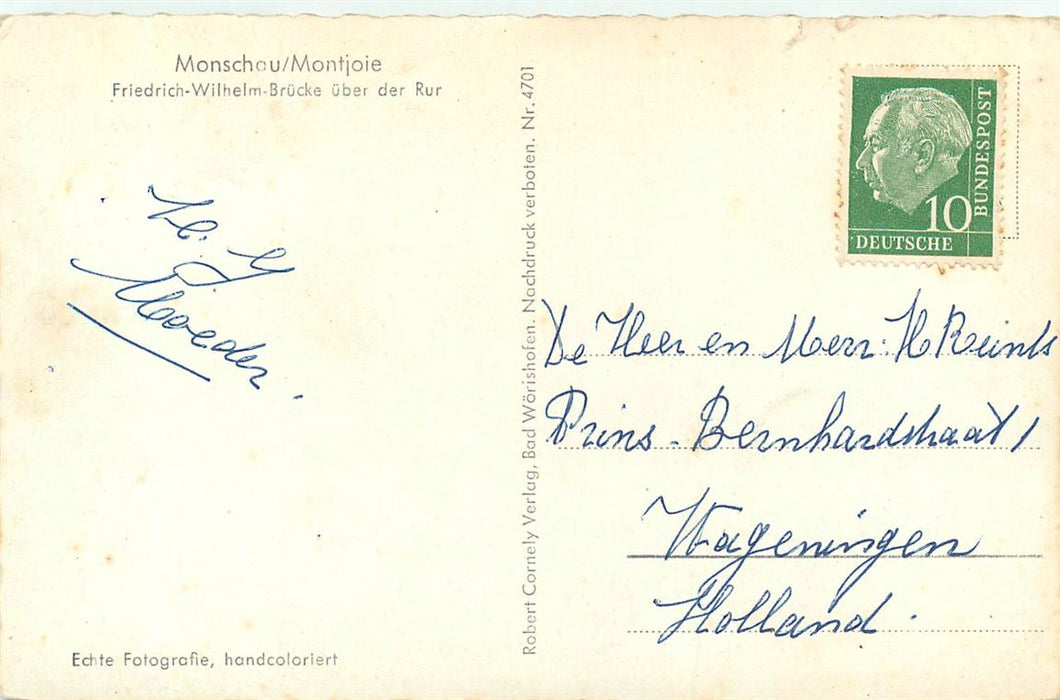 Monschau/Montjoie
Friedrich-Wilhelm-Brücke über der Rur
H. G
Moeder.
Echte Fotografie, handcoloriert
Robert Cornely Verlag, Bad Wörishofen. Nachdruck verboten. Nr. 4701
10
DEUTSCHE
BUNDESPOST
De Heer en Mevr: H Reints
Prins-Bernhardstraat 1
Wageningen
Holland.